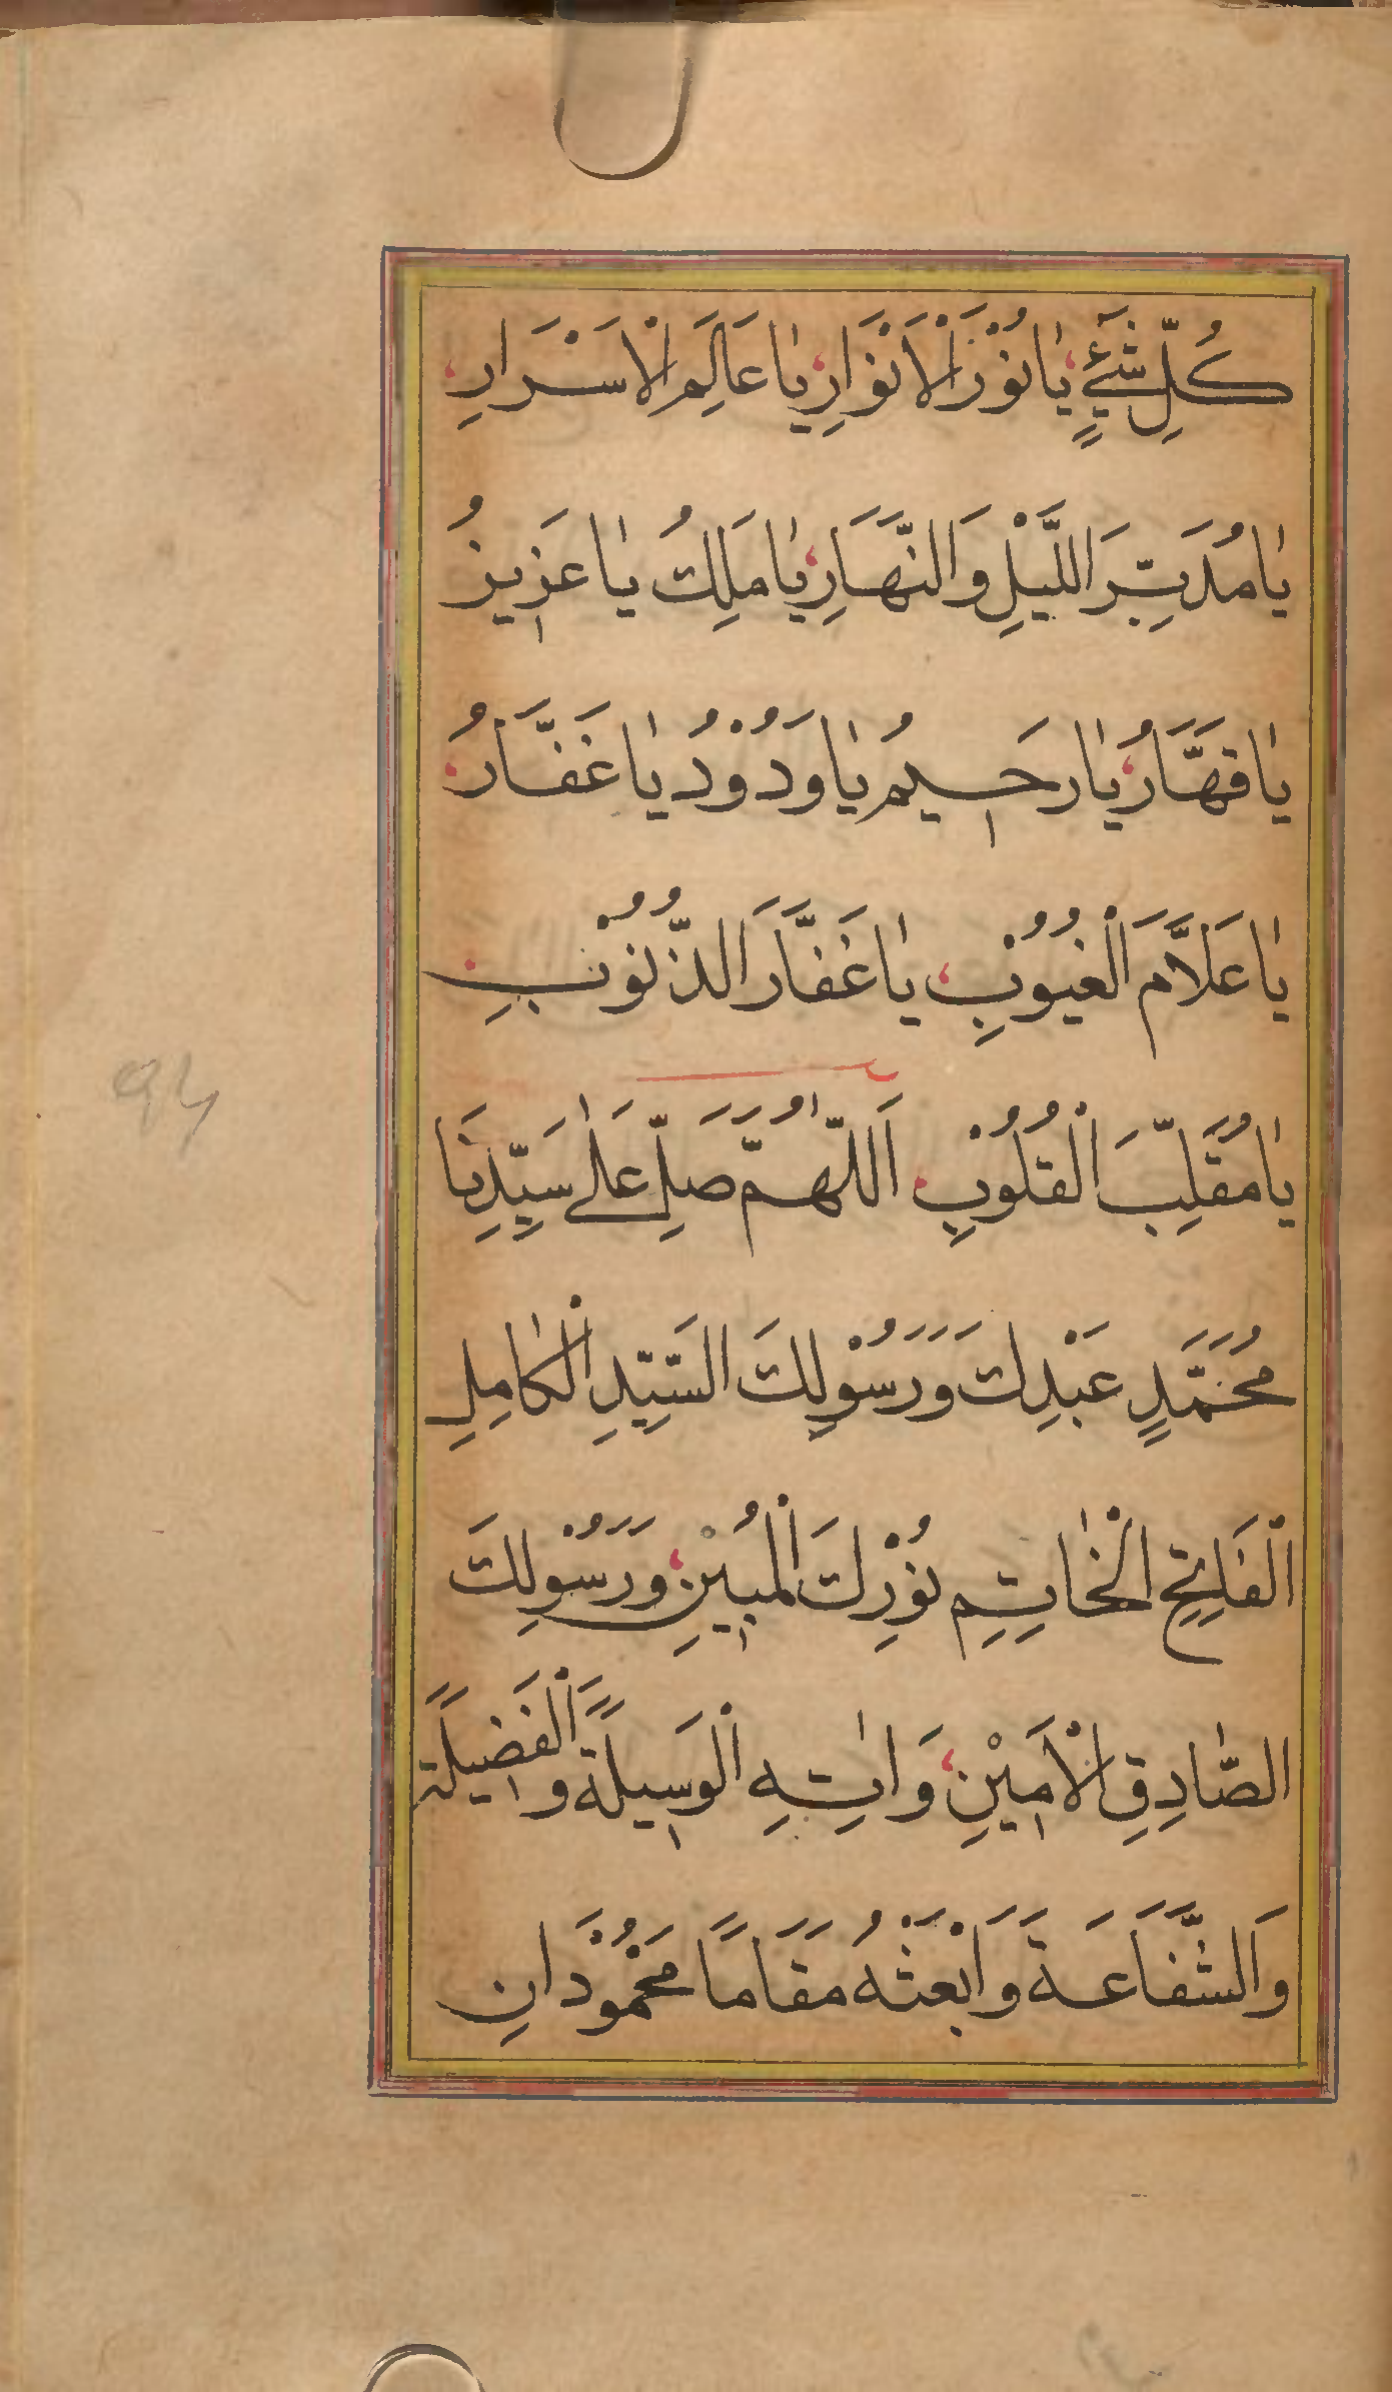 كُلِّ شَيْءٍ يَا نُوْرَ الْاَنْوَارِ يَا عَالِمَ الْاَسْرَارِ
يَا مُدَبِّرَ اللَّيْلِ وَالنَّهَارِ يَا مَلِكُ يَا عَزِيزُ
يَا قَهَّارُ يَا رَحِيمُ يَا وَدُوْدُ يَا غَفَّارُ
يَا عَلَّامَ الْغُيُوْبِ يَا غَفَّارَ الذُّنُوْبِ
يَا مُقَلِّبَ الْقُلُوْبِ اَللّٰهُمَّ صَلِّ عَلٰى سَيِّدِنَا
مُحَمَّدٍ عَبْدِكَ وَرَسُوْلِكَ السَّيِّدِ الْكَامِلِ
الْفَاتِحِ الْخَاتِمِ نُوْرِكَ الْمُبِيْنِ وَرَسُوْلِكَ
الصَّادِقِ الْاَمِيْنِ وَاٰتِهِ الْوَسِيلَةَ وَالْفَضِيلَةَ
وَالشَّفَاعَةَ وَابْعَثْهُ مَقَامًا مَحْمُوْدَانِ
94